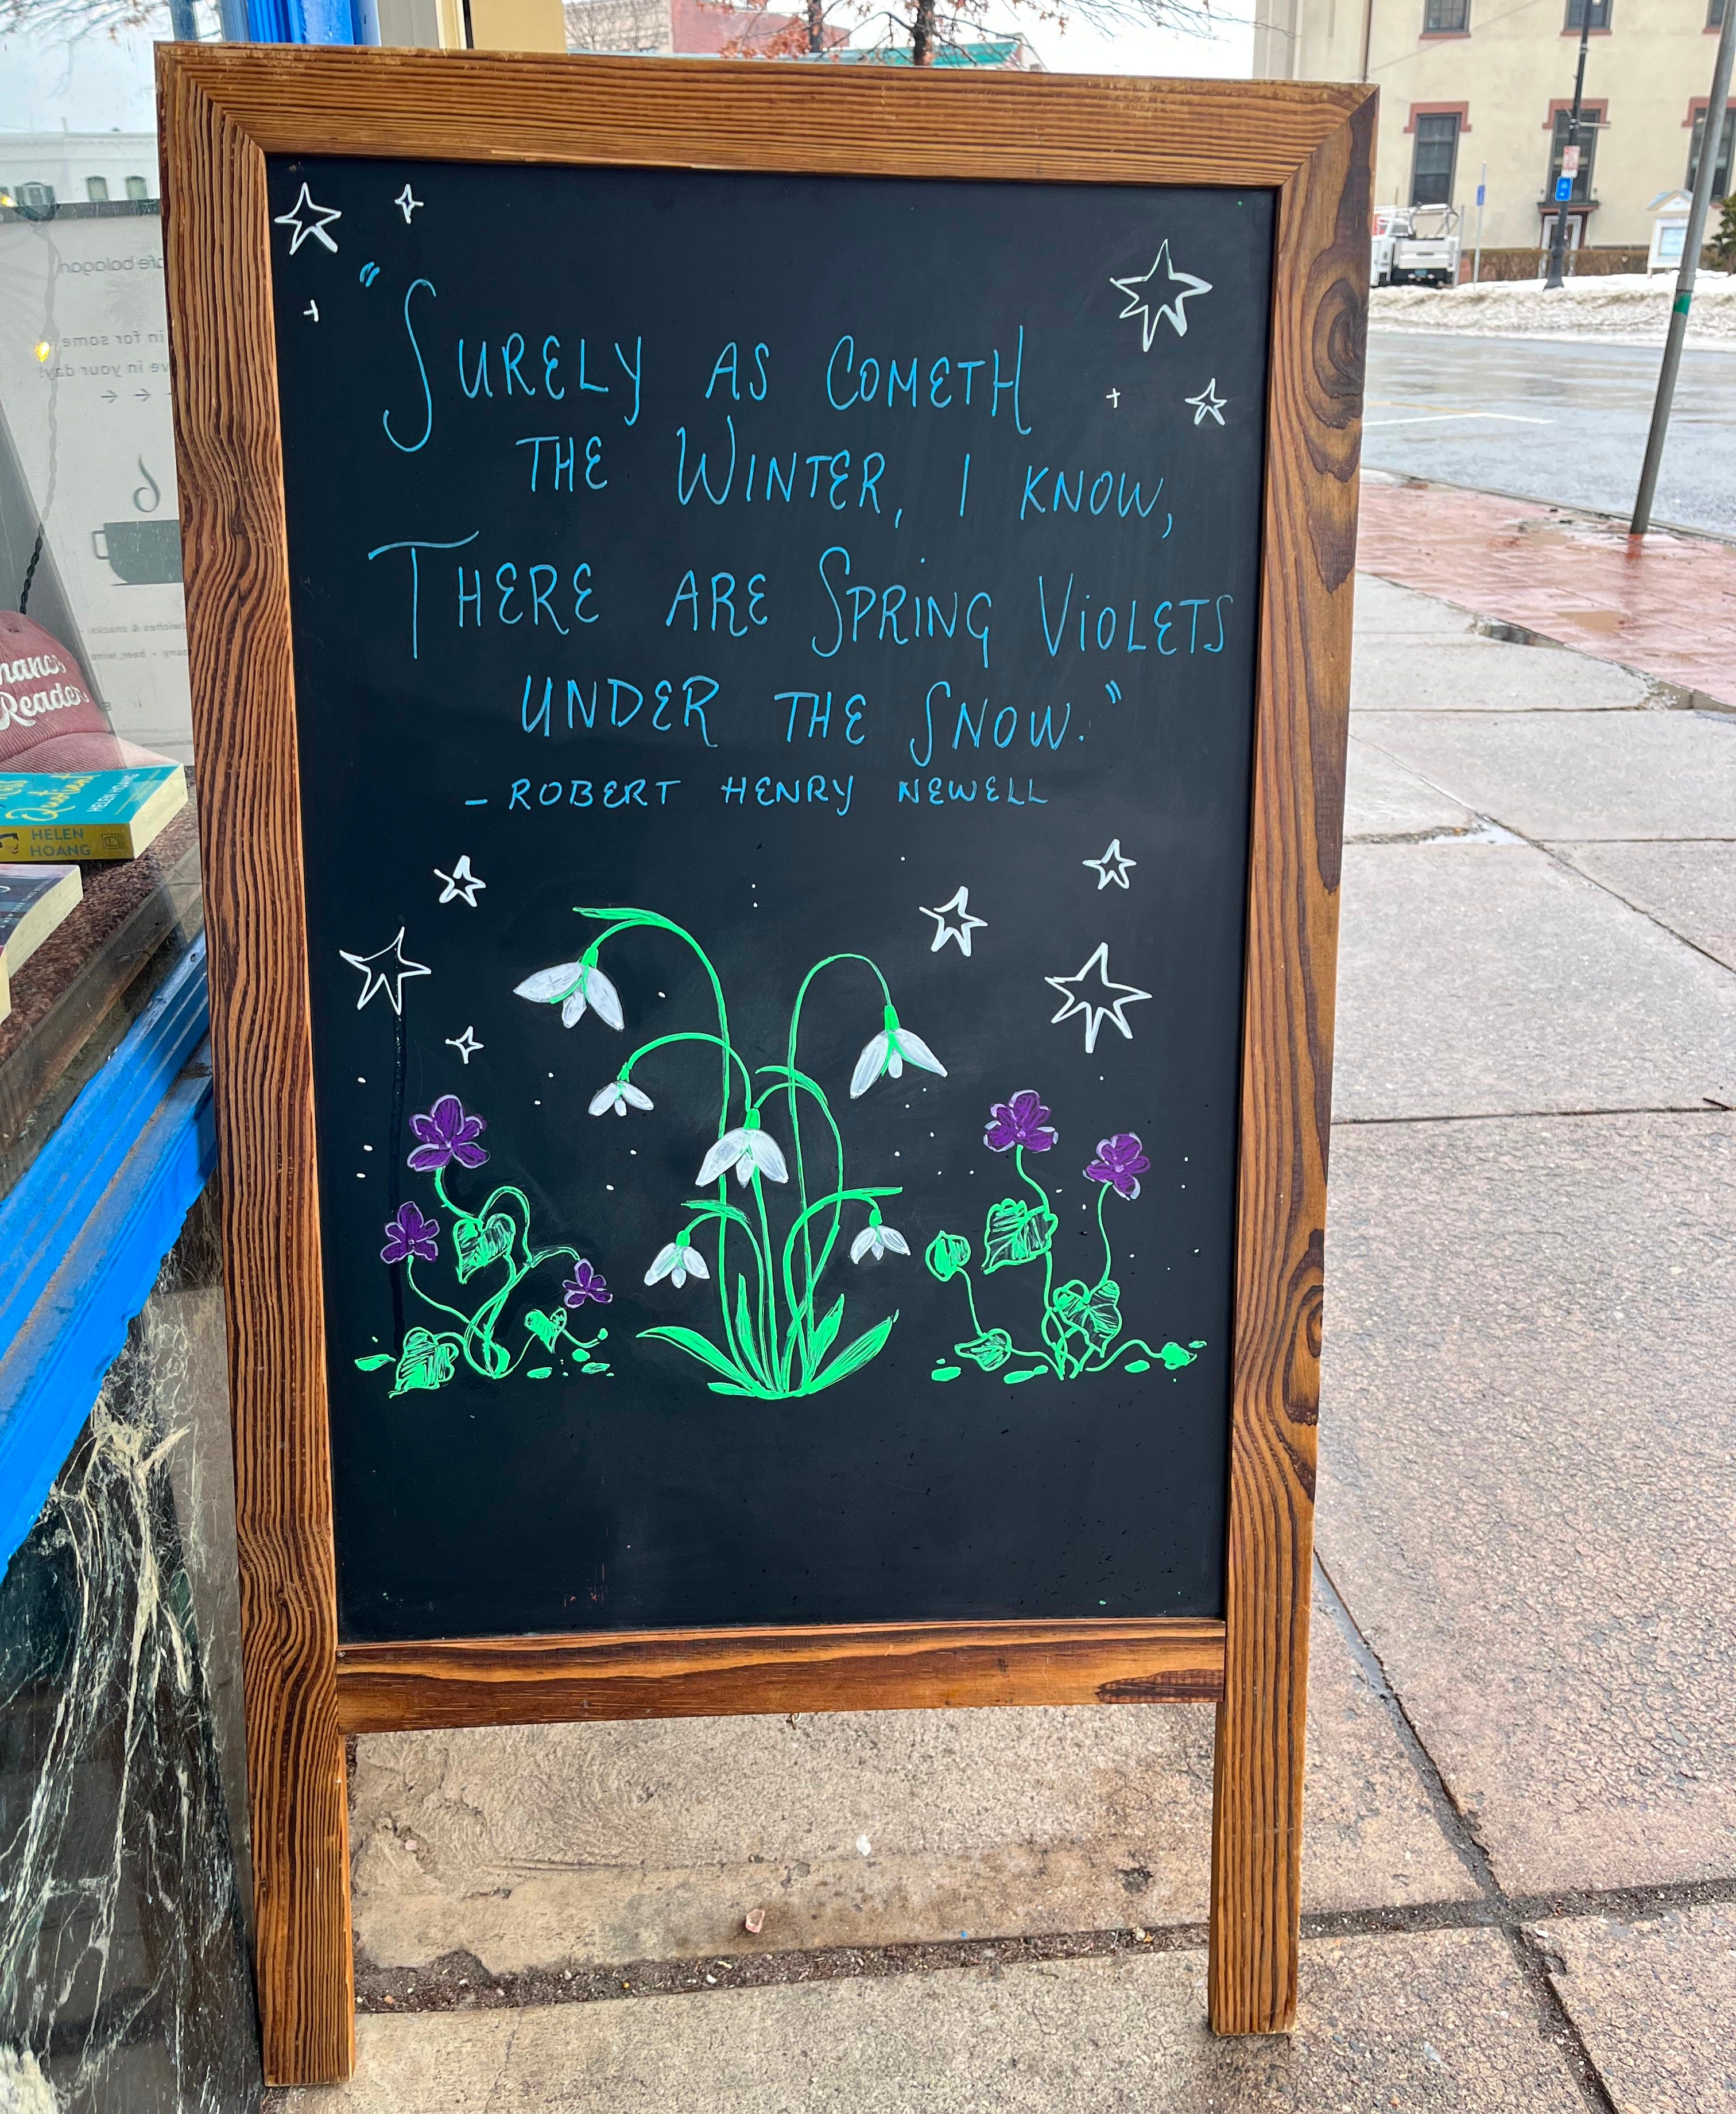 "Surely as Cometh
the Winter, I know,
There are Spring Violets
under the Snow."
- Robert Henry Newell
in for some
in your day!
Reader
HELEN
HOANG
HELEN HOANG